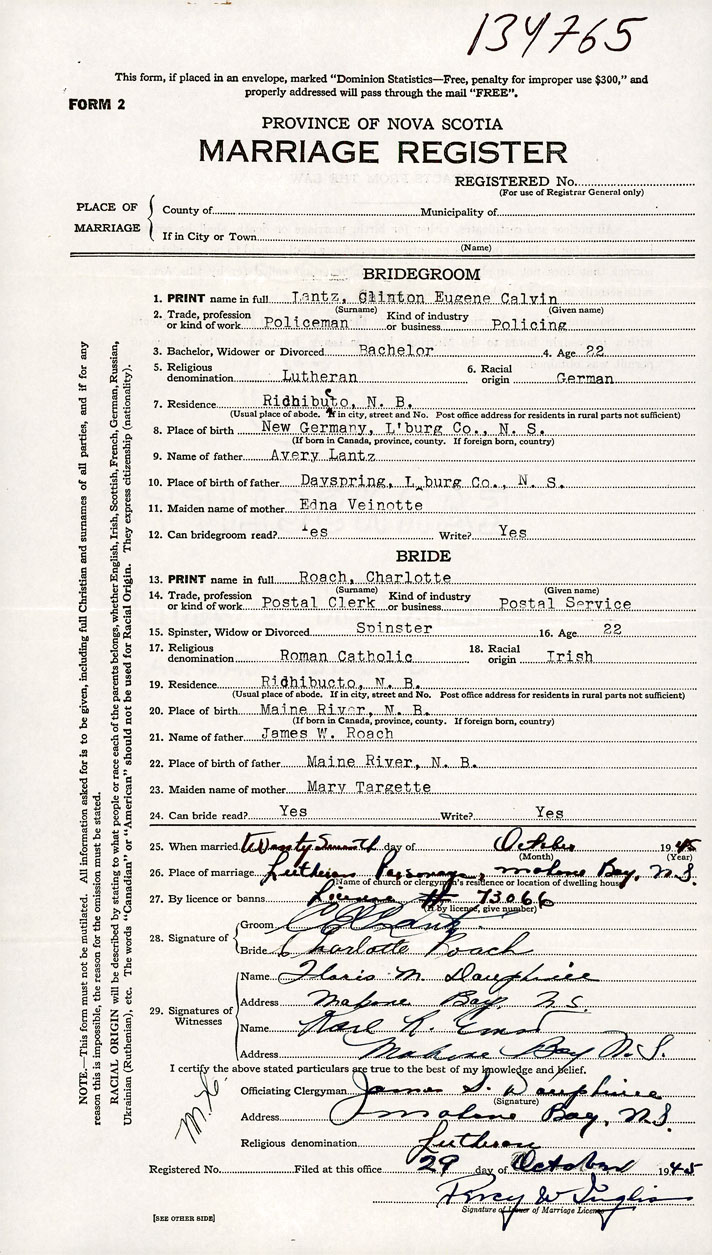 134765
This form, if placed in an envelope, marked "Dominion Statistics—Free, penalty for improper use $300," and
properly addressed will pass through the mail "FREE".
FORM 2
PROVINCE OF NOVA SCOTIA
MARRIAGE REGISTER
REGISTERED No.
(For use of Registrar General only)
PLACE OF MARRIAGE
County of Municipality of
If in City or Town
(Name)
BRIDEGROOM
1. PRINT name in full Lantz, Clinton Eugene Calvin
(Surname) (Given name)
2. Trade, profession or kind of work Policeman Kind of industry or business Policing
3. Bachelor, Widower or Divorced Bachelor 4. Age 22
5. Religious denomination Lutheran 6. Racial origin German
7. Residence Ridhibuto, N. B.
(Usual place of abode. If in city, street and No. Post office address for residents in rural parts not sufficient)
8. Place of birth New Germany, L'burg Co., N. S.
(If born in Canada, province, county. If foreign born, country)
9. Name of father Avery Lantz
10. Place of birth of father Dayspring, L burg Co., N. S.
11. Maiden name of mother Edna Veinotte
12. Can bridegroom read? Yes Write? Yes
BRIDE
13. PRINT name in full Roach, Charlotte
(Surname) (Given name)
14. Trade, profession or kind of work Postal Clerk Kind of industry or business Postal Service
15. Spinster, Widow or Divorced Spinster 16. Age 22
17. Religious denomination Roman Catholic 18. Racial origin Irish
19. Residence Ridhibucto, N. B.
(Usual place of abode. If in city, street and No. Post office address for residents in rural parts not sufficient)
20. Place of birth Maine River, N. B.
(If born in Canada, province, county. If foreign born, country)
21. Name of father James W. Roach
22. Place of birth of father Maine River, N. B.
23. Maiden name of mother Mary Targette
24. Can bride read? Yes Write? Yes
25. When married day of October 1945
(Month) (Year)
26. Place of marriage Lutheran Parsonage, Mahone Bay, N.S.
(Name of church or clergyman's residence or location of dwelling house)
27. By licence or banns License # 73066
(If by licence, give number)
28. Signature of
Groom C E Lantz
Bride Charlotte Roach
29. Signatures of Witnesses
Name M. Dauphinee
Address Mahone Bay, N.S.
Name Karl R.
Address Mahone Bay N.S.
I certify the above stated particulars are true to the best of my knowledge and belief.
Officiating Clergyman James S. Dauphinee
(Signature)
Address Mahone Bay, N.S.
Religious denomination Lutheran
Registered No. Filed at this office 29 day of October 1945
Percy W Inglis
Signature of Issuer of Marriage Licence
[SEE OTHER SIDE]
NOTE.—This form must not be mutilated. All information asked for is to be given, including full Christian and surnames of all parties, and if for any
reason this is impossible, the reason for the omission must be stated.
RACIAL ORIGIN will be described by stating to what people or race each of the parents belongs, whether English, Irish, Scottish, French, German, Russian,
Ukrainian (Ruthenian), etc. The words "Canadian" or "American" should not be used for Racial Origin. They express citizenship (nationality).